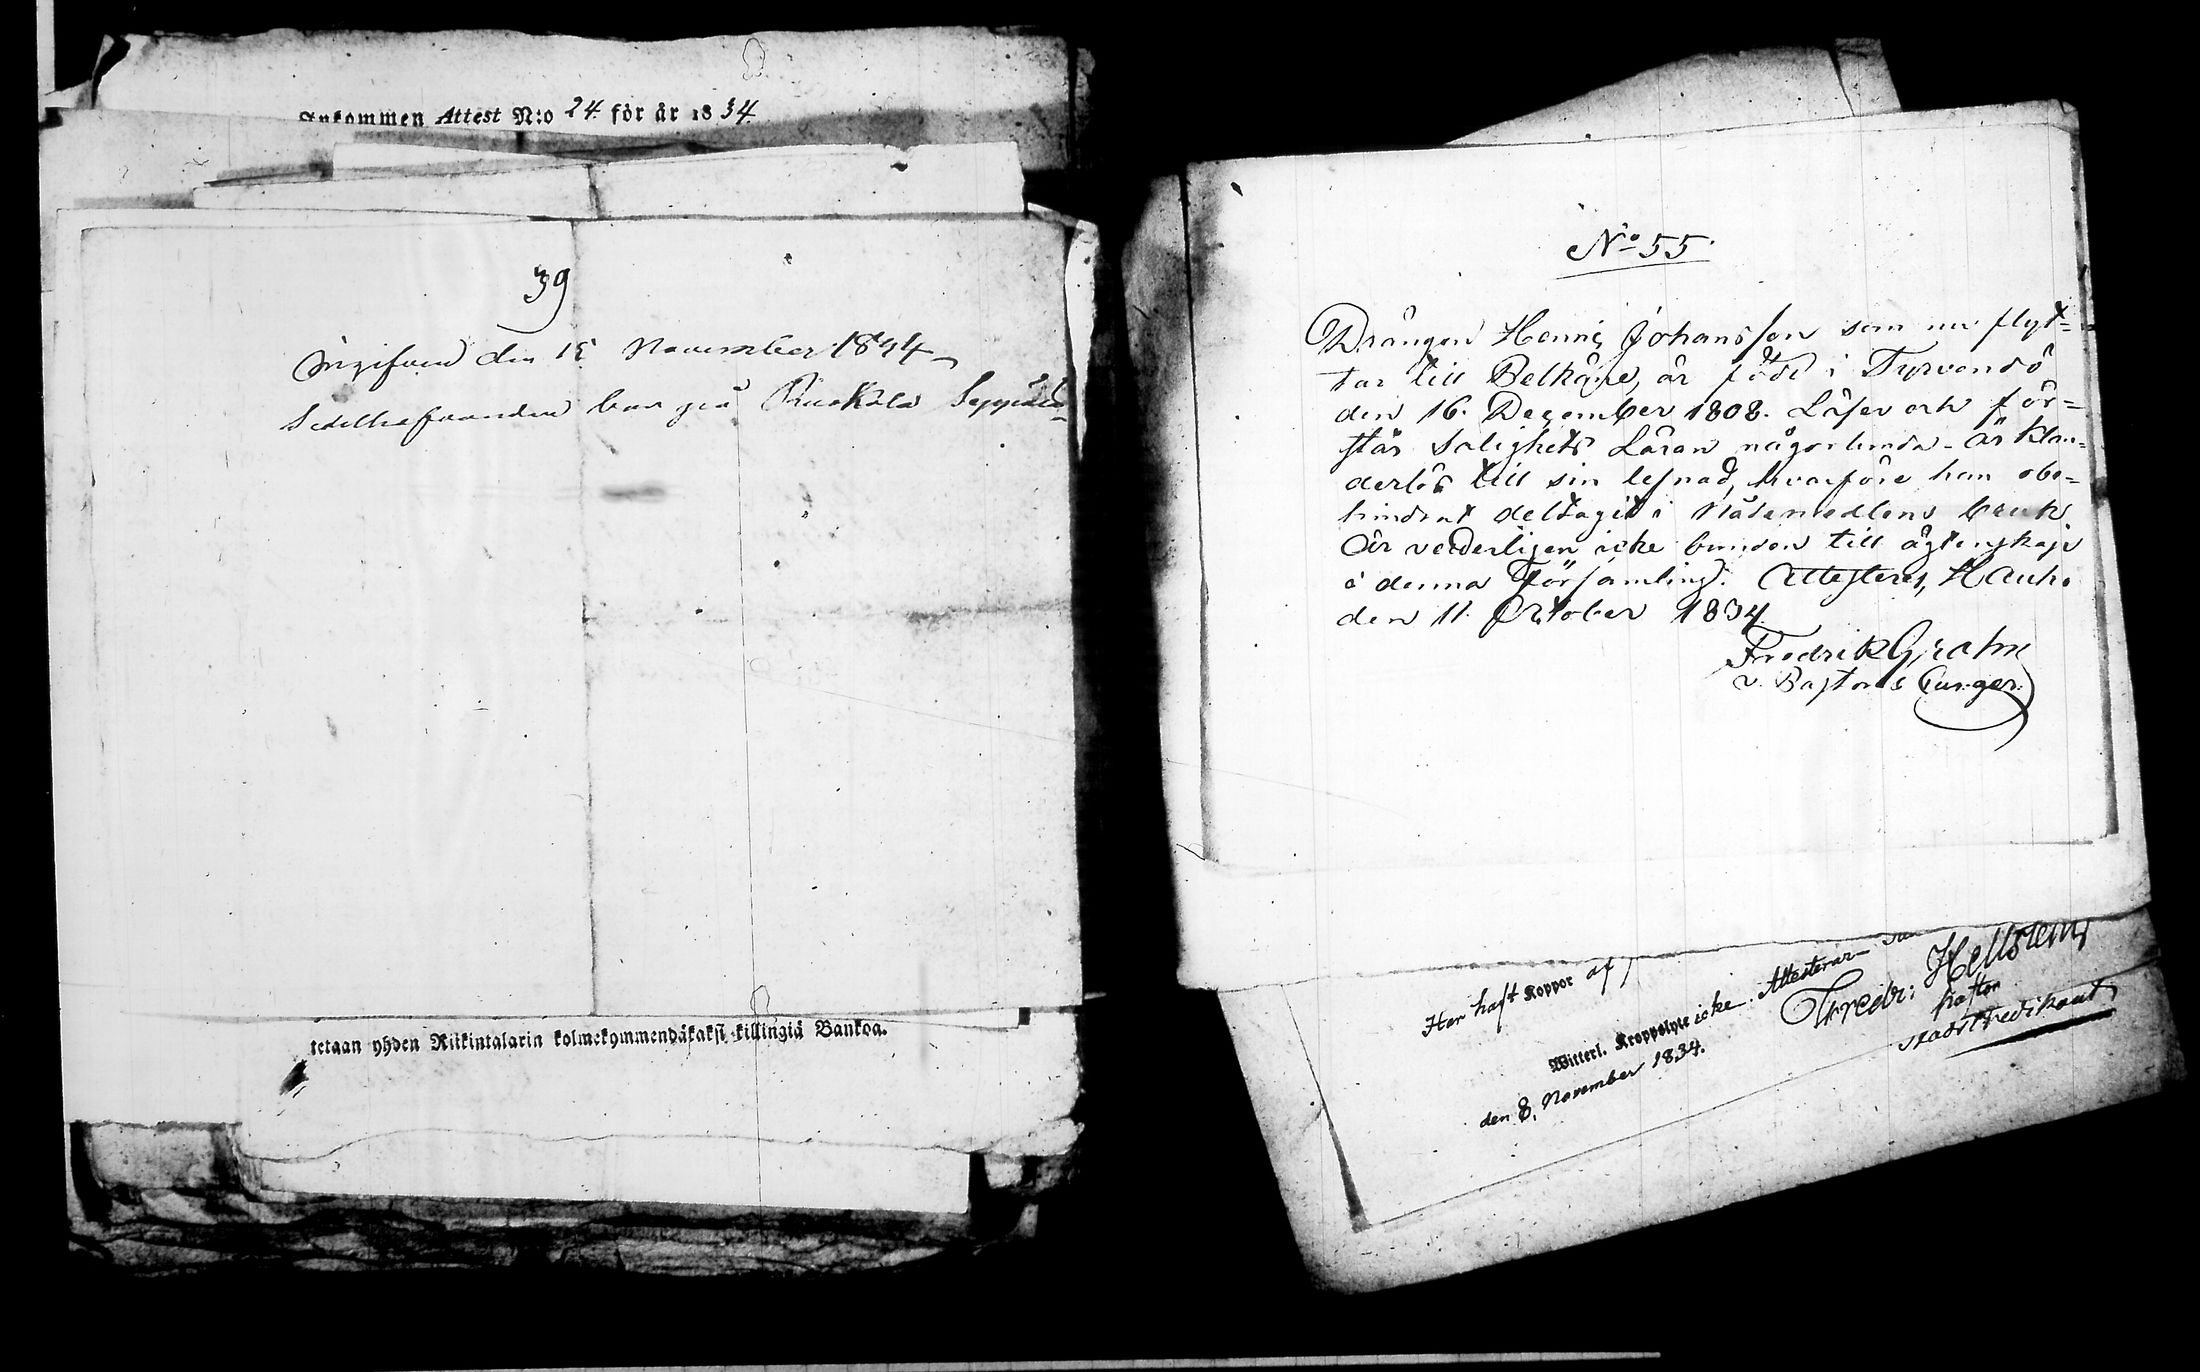 Inkommen Attest N:o 24. för år 1834.
39
Ingifven den 15 November 1834
Sedelhafvanden bor på Ruokola Seppälä
tetaan yhden Riikintalarin kolmekymmendäkaksi killingiä Bankoa.
No 55.
Drängen Henric Johansson som nu flyt=
tar till Pelkäne, är född i Tyrvändö
den 16. December 1808. Läser och för=
står Salighets Läran någorlunda - är klan=
derlös till sin lefnad, hvarföre han obe=
hindrat deltagit i Nådemedlens bruk
Är veterligen icke bunden till ägtenskap
i denna Församling. Attesteres, Hauho
den 11. October 1834.
Fredrik Grahn
v. Pastors
Har haft Koppor af
Witterl. Kroppslyte icke. Attesterar
den 8. November 1834.
Fredr: Hellstens
Pastor
Stadspredikant